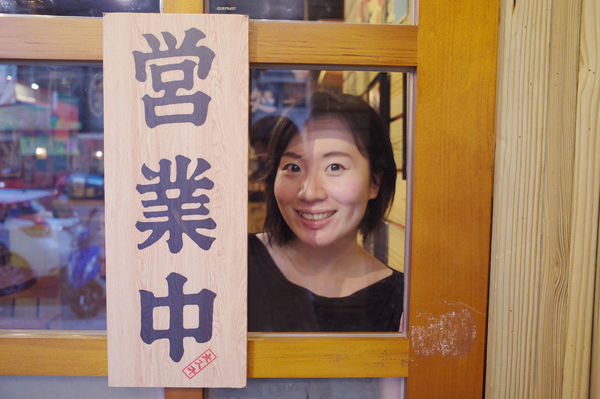 営
業
中